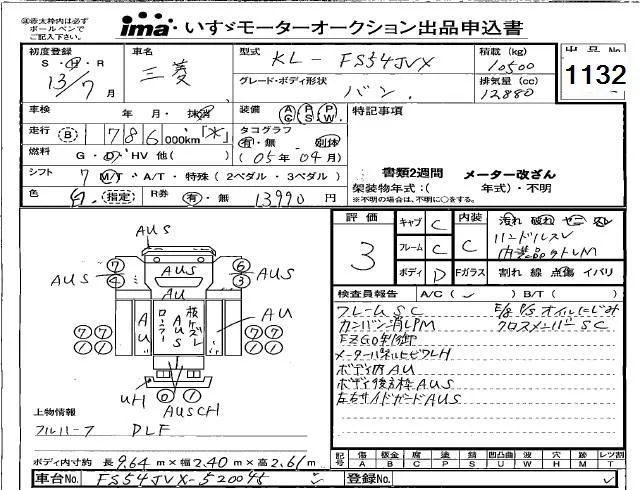 ㊟赤太枠内は必ず
ボールペンで
ご記入下さい。
ima いすゞモーターオークション出品申込書
初度登録
S・H・R
13/7月
車名
三菱
型式
KL-FS54JVX
グレード・ボディ形状
バン
積載(kg)
10500
排気量(cc)
12880
出品No
1132
車検 年・月・抹消
装備 AC PS PW
走行 B 1786,000km「*」
タコグラフ
有・無 別体
(05年04月)
燃料 G・D・HV 他( )
シフト 7 M/T・A/T・特殊(2ペダル・3ペダル)
色 白・指定
R券 有・無 13990円
特記事項
書類2週間 メーター改ざん
架装物年式:( 年式)・不明
※不明の場合は、不明に○をする。
評価
3
キャブ C
フレーム C
ボディ D
内装 C
Fガラス
汚れ 破れ ヤニ スレ
ハンドルスレ
割れ 線 点傷 イバリ
検査員報告 A/C( ) B/T( )
フレームSC
メーターパネルヒビワレH
ボディ内AU
ボディ後方枠AUS
左右サイドガードAUS
クロスメンバーSC
AUS
AUS
AUS
AUS
AU
AU
AU
AUS
UH
AUSCH
上物情報
フルハーフ DLF
ボディ内寸約 長9.64m×幅2.40m×高2.61m
記号 傷 A 鈑金 B 腐 C 塗 P 錆 S 凹凸曲 U 波 W 穴 H 痕 M 汚 T レツ割 L
車台No. FS54JVX-520045
登録No.